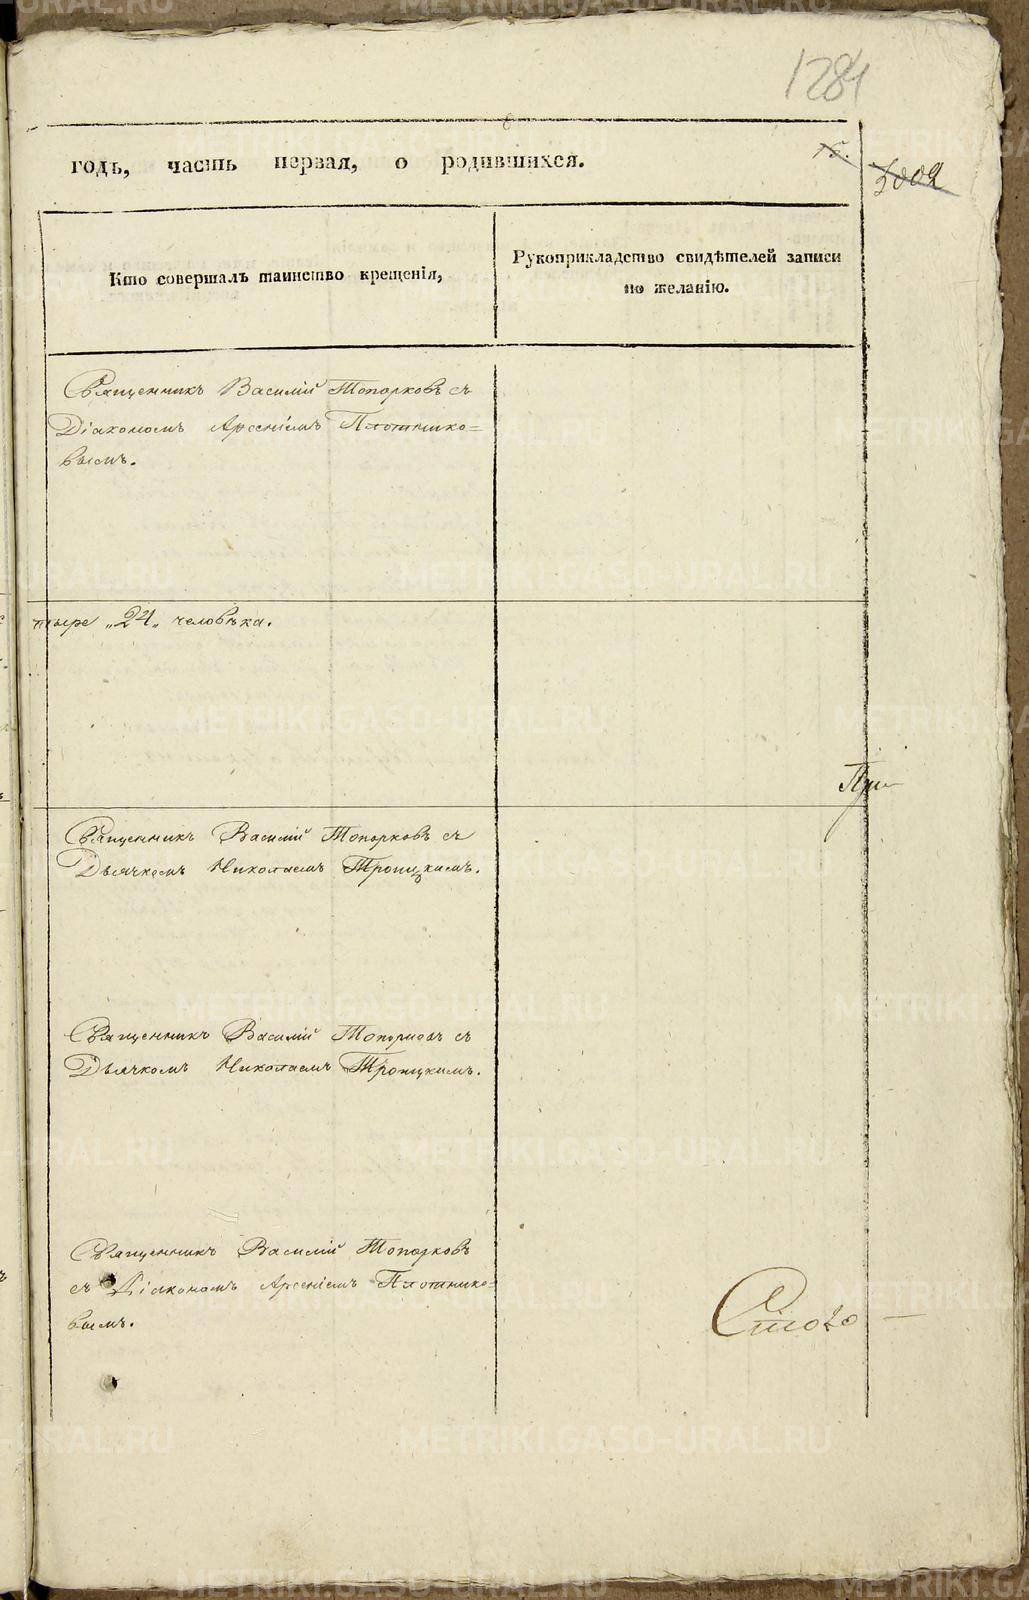 1281
годъ, часть первая, о родившихся.
15.
3002
Кто совершалъ таинство крещенія,
Рукоприкладство свидѣтелей записи
по желанію.
Священникъ Василій Топорковъ съ
Діакономъ Арсеніемъ Плотнико=
вымъ.
тыре „24„ человѣка.
При
Священникъ Василій Топорковъ съ
Дьячкомъ Николаемъ Троицкимъ.
Священникъ Василій Топорковъ съ
Дьячкомъ Николаемъ Троицкимъ.
Священникъ Василій Топорковъ
съ Діакономъ Арсеніемъ Плотнико=
вымъ.
METRIKI.GASO-URAL.RU